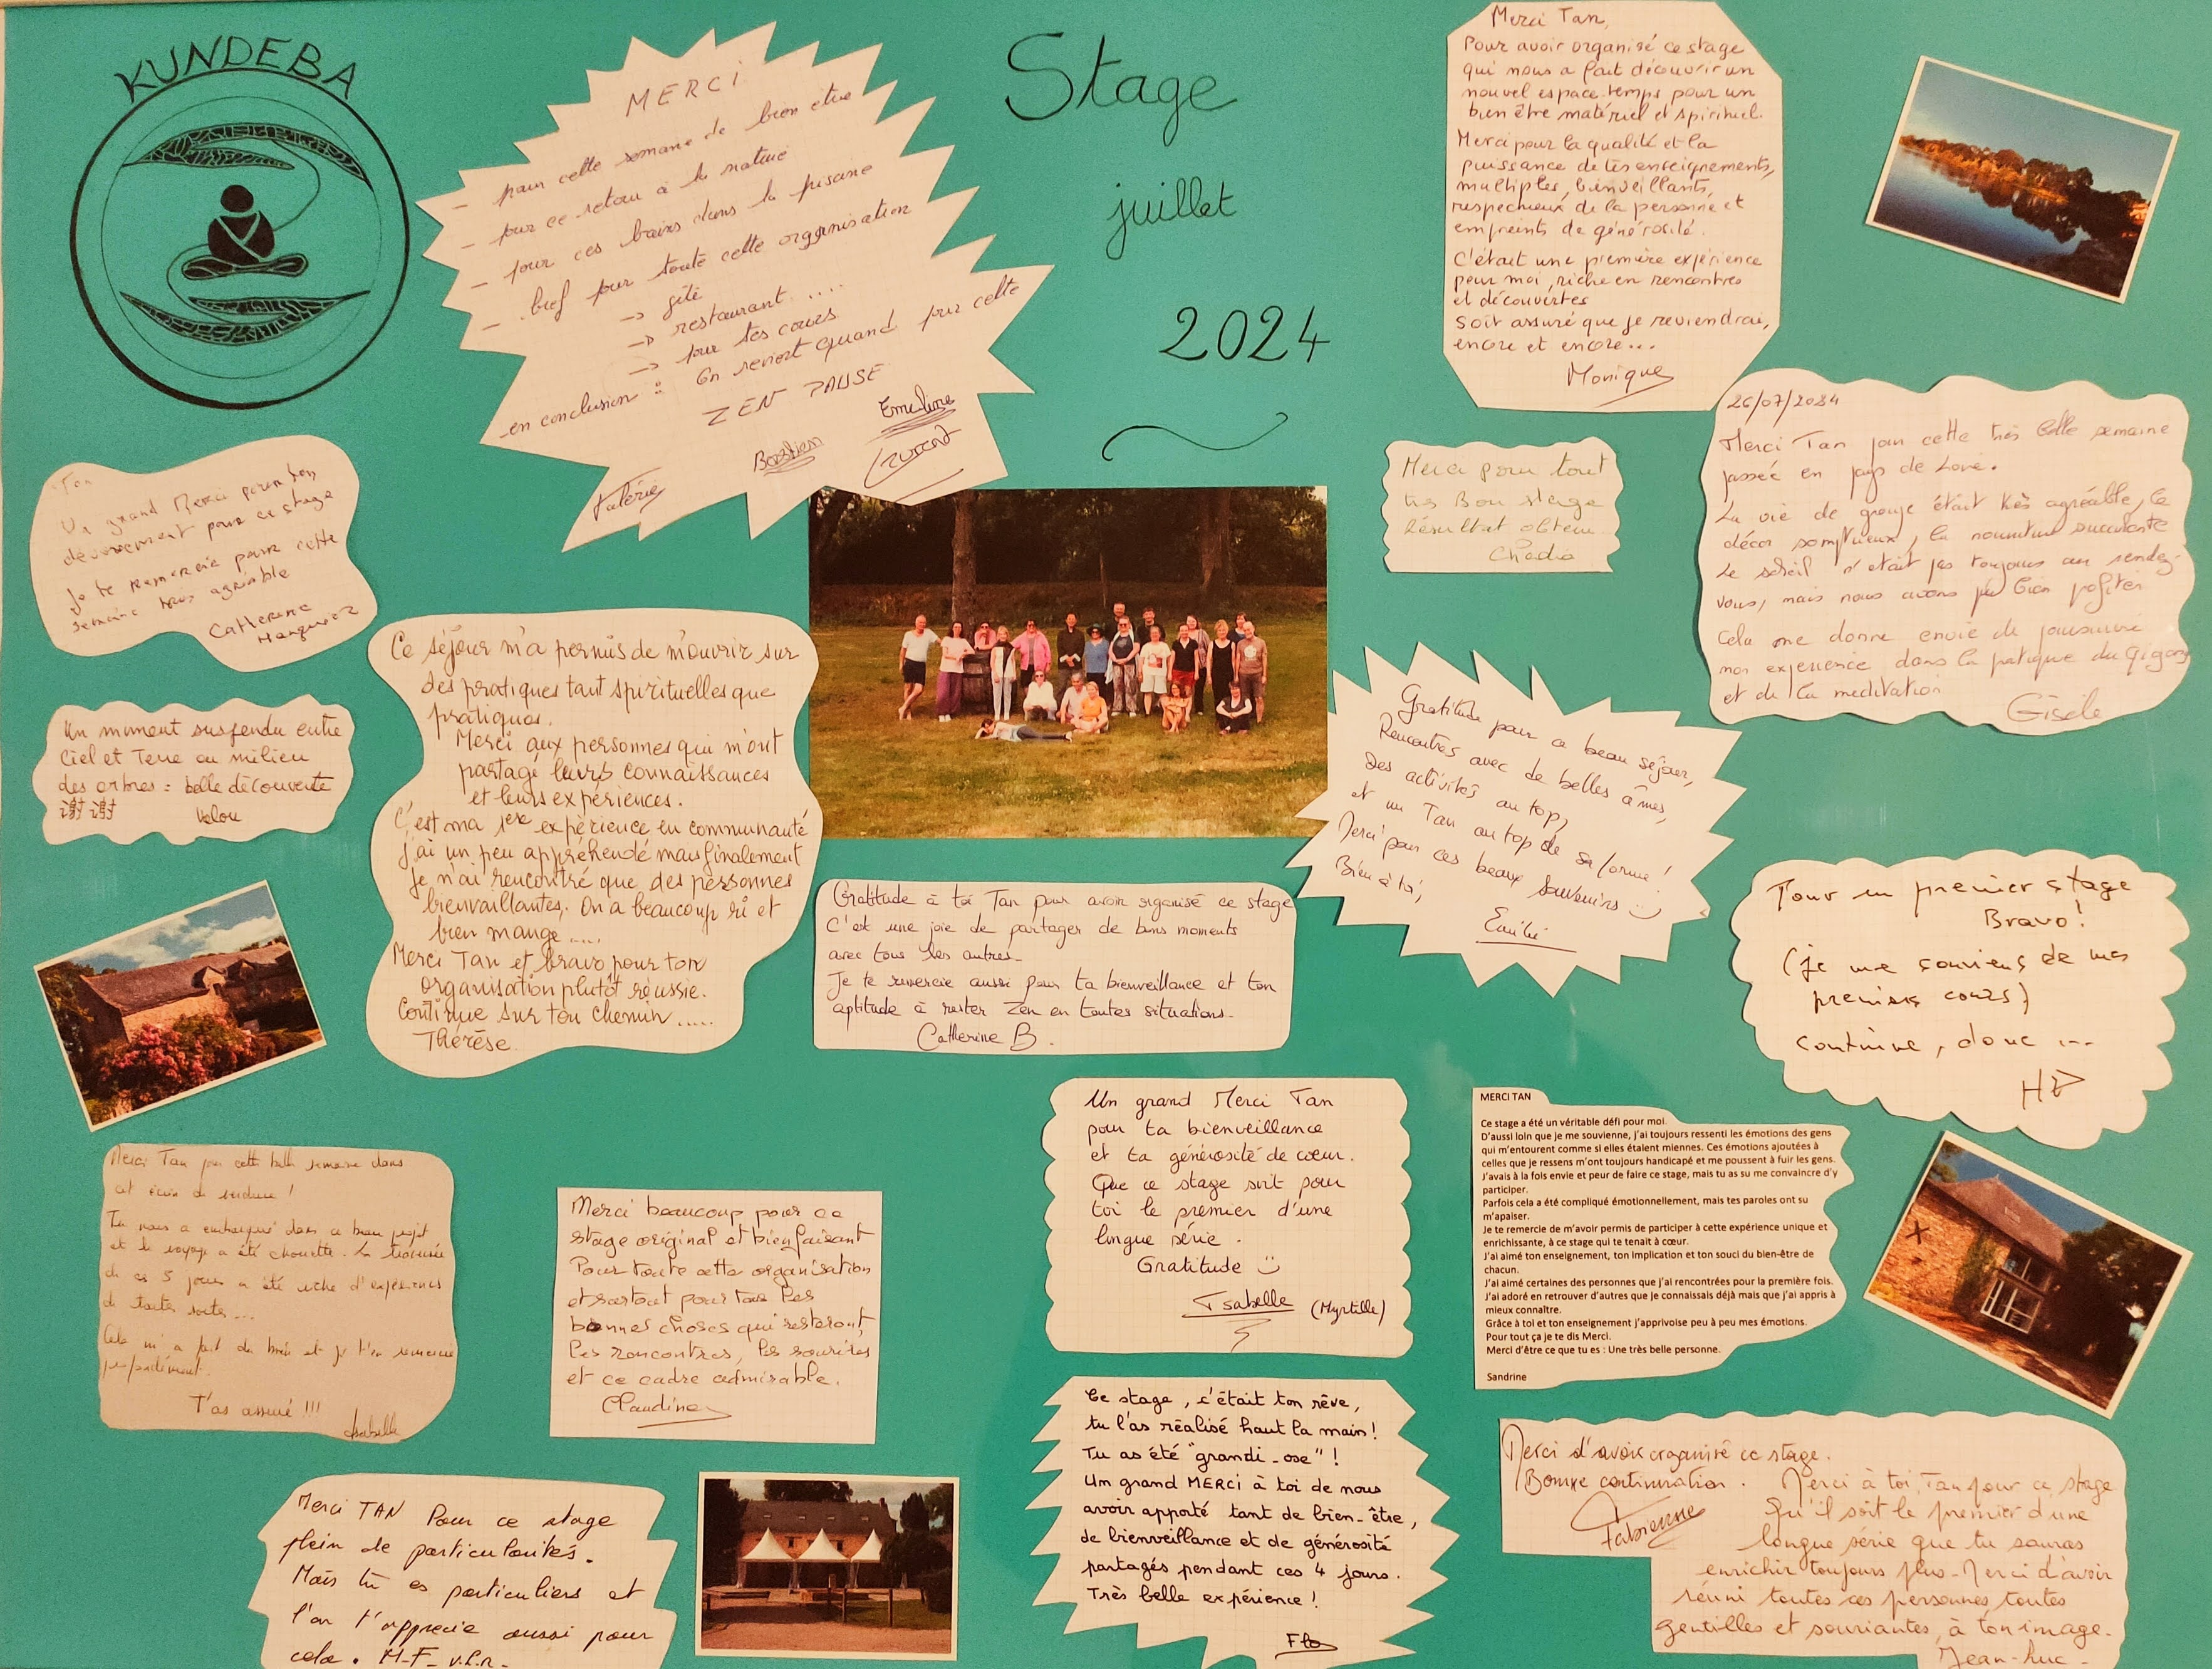 KUNDEBA
Stage
juillet
2024
MERCI
- pour cette semaine de bien être
- pour ce retour à la nature
- pour ces bains dans la piscine
- bref pour toute cette organisation
→ gîte
→ restaurant ....
→ pour tes cours
en conclusion : On revient quand pour cette
ZEN PAUSE
Valérie
Bastien
Emeline
Laurent
Merci Tan,
Pour avoir organisé ce stage
qui nous a fait découvrir un
nouvel espace-temps pour un
bien être matériel et spirituel.
Merci pour la qualité et la
puissance de tes enseignements,
multiples, bienveillants,
respectueux de la personne et
empreints de générosité.
C'était une première expérience
pour moi, riche en rencontres
et découvertes
Soit assuré que je reviendrai,
encore et encore...
Monique
26/07/2024
Merci Tan pour cette très belle semaine
passée en pays de Loire.
La vie de groupe était très agréable, le
décor somptueux, la nourriture succulente
Le soleil n'était pas toujours au rendez-
vous, mais nous avons pu bien profiter
Cela me donne envie de poursuivre
mon experience dans la pratique du Qigong
et de la meditation
Gisèle
Merci pour tout
très Bon stage
Résultat obtenu
Chadia
Tan
Un grand Merci pour ton
dévouement pour ce stage
Je te remercie pour cette
semaine très agréable
Catherine
Un moment suspendu entre
Ciel et Terre au milieu
des arbres : belle découverte
谢谢 Valou
Ce séjour m'a permis de m'ouvrir sur
des pratiques tant spirituelles que
pratiques.
Merci aux personnes qui m'ont
partagé leurs connaissances
et leurs expériences.
C'est ma 1ère expérience en communauté
j'ai un peu appréhendé mais finalement
je n'ai rencontré que des personnes
bienvaillantes. On a beaucoup ri et
bien mangé ....
Merci Tan et bravo pour ton
organisation plutôt réussie.
Continue sur ton chemin .....
Thérèse
Gratitude à toi Tan pour avoir organisé ce stage
C'est une joie de partager de bons moments
avec tous les autres.
Je te remercie aussi pour ta bienveillance et ton
aptitude à rester Zen en toutes situations.
Catherine B.
Gratitude pour ce beau séjour,
Rencontres avec de belles âmes,
Des activités au top,
et un Tan au top de sa forme !
Merci pour ces beaux souvenirs :)
Bien à toi,
Emilie
Pour un premier stage
Bravo !
(je me souviens de mes
premiers cours)
continue, donc ...
Un grand Merci Tan
pour ta bienveillance
et ta générosité de cœur.
Que ce stage soit pour
toi le premier d'une
longue série.
Gratitude :)
Isabelle (Myrtille)
MERCI TAN
Ce stage a été un véritable défi pour moi.
D'aussi loin que je me souvienne, j'ai toujours ressenti les émotions des gens
qui m'entourent comme si elles étaient miennes. Ces émotions ajoutées à
celles que je ressens m'ont toujours handicapé et me poussent à fuir les gens.
J'avais à la fois envie et peur de faire ce stage, mais tu as su me convaincre d'y
participer.
Parfois cela a été compliqué émotionnellement, mais tes paroles ont su
m'apaiser.
Je te remercie de m'avoir permis de participer à cette expérience unique et
enrichissante, à ce stage qui te tenait à cœur.
J'ai aimé ton enseignement, ton implication et ton souci du bien-être de
chacun.
J'ai aimé certaines des personnes que j'ai rencontrées pour la première fois.
J'ai adoré en retrouver d'autres que je connaissais déjà mais que j'ai appris à
mieux connaître.
Grâce à toi et ton enseignement j'apprivoise peu à peu mes émotions.
Pour tout ça je te dis Merci.
Merci d'être ce que tu es : Une très belle personne.
Sandrine
Merci Tan pour cette belle semaine dans
cet écrin de verdure !
Tu nous a embarqué dans ce beau projet
et le voyage a été chouette. La traversée
de ces 5 jours a été riche d'expériences
de toutes sortes...
Cela m'a fait du bien et je t'en remercie
profondément.
T'as assuré !!!
Isabelle
Merci beaucoup pour ce
stage original et bienfaisant
Pour toute cette organisation
et surtout pour tous les
bonnes choses qui resteront,
les rencontres, les sourires
et ce cadre admirable.
Claudine
Ce stage, c'était ton rêve,
tu l'as réalisé haut la main !
Tu as été "grandi-ose" !
Un grand MERCI à toi de nous
avoir apporté tant de bien-être,
de bienveillance et de générosité
partagés pendant ces 4 jours.
Très belle expérience !
Flo
Merci TAN Pour ce stage
plein de particularités.
Mais tu es particuliers et
l'on t'apprecie aussi pour
cela. M-F- V.L.R-
Merci d'avoir organisé ce stage.
Bonne continuation.
Fabienne
Merci à toi, Tan pour ce stage
Qu'il soit le premier d'une
longue série que tu sauras
enrichir toujours plus - Merci d'avoir
réuni toutes ces personnes toutes
gentilles et souriantes, à ton image.
Jean-Luc -